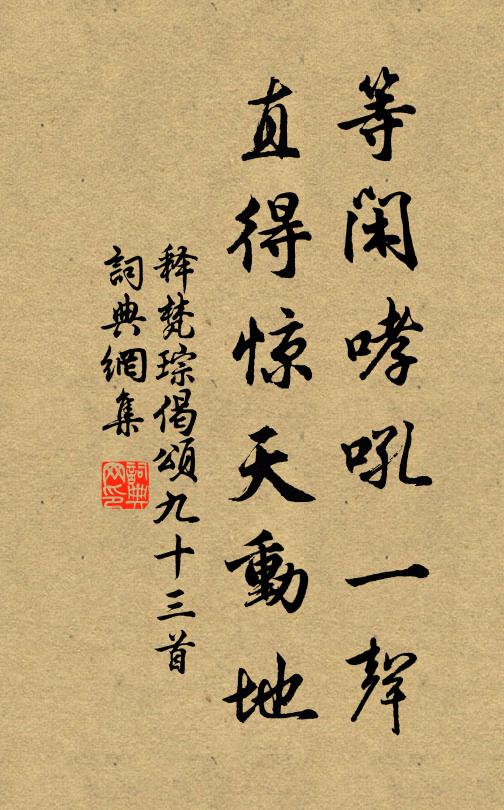 等闲哮吼一聲
直得惊天動地
释梵琮偈頌九十三首
詞典網集
詞典网印